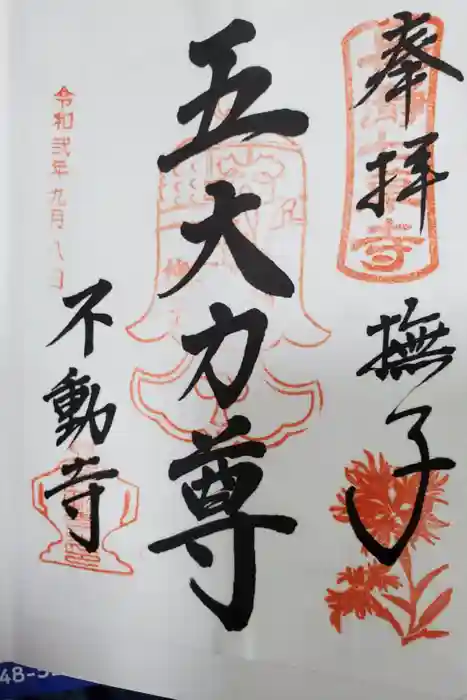 奉拝
撫子
五大力尊
令和弐年九月八日
不動寺
48-5